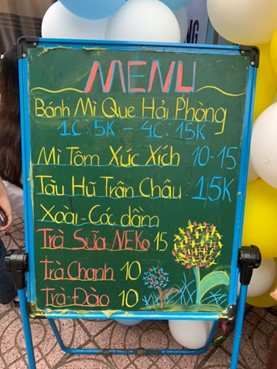 MENU
Bánh Mì Que Hải Phòng
1C: 5K - 4C: 15K
Mì Tôm Xúc Xích 10-15
Tàu Hũ Trân Châu: 15K
Xoài-Cóc dầm
Trà Sữa NEKo 15
Trà Chanh 10
Trà Đào 10